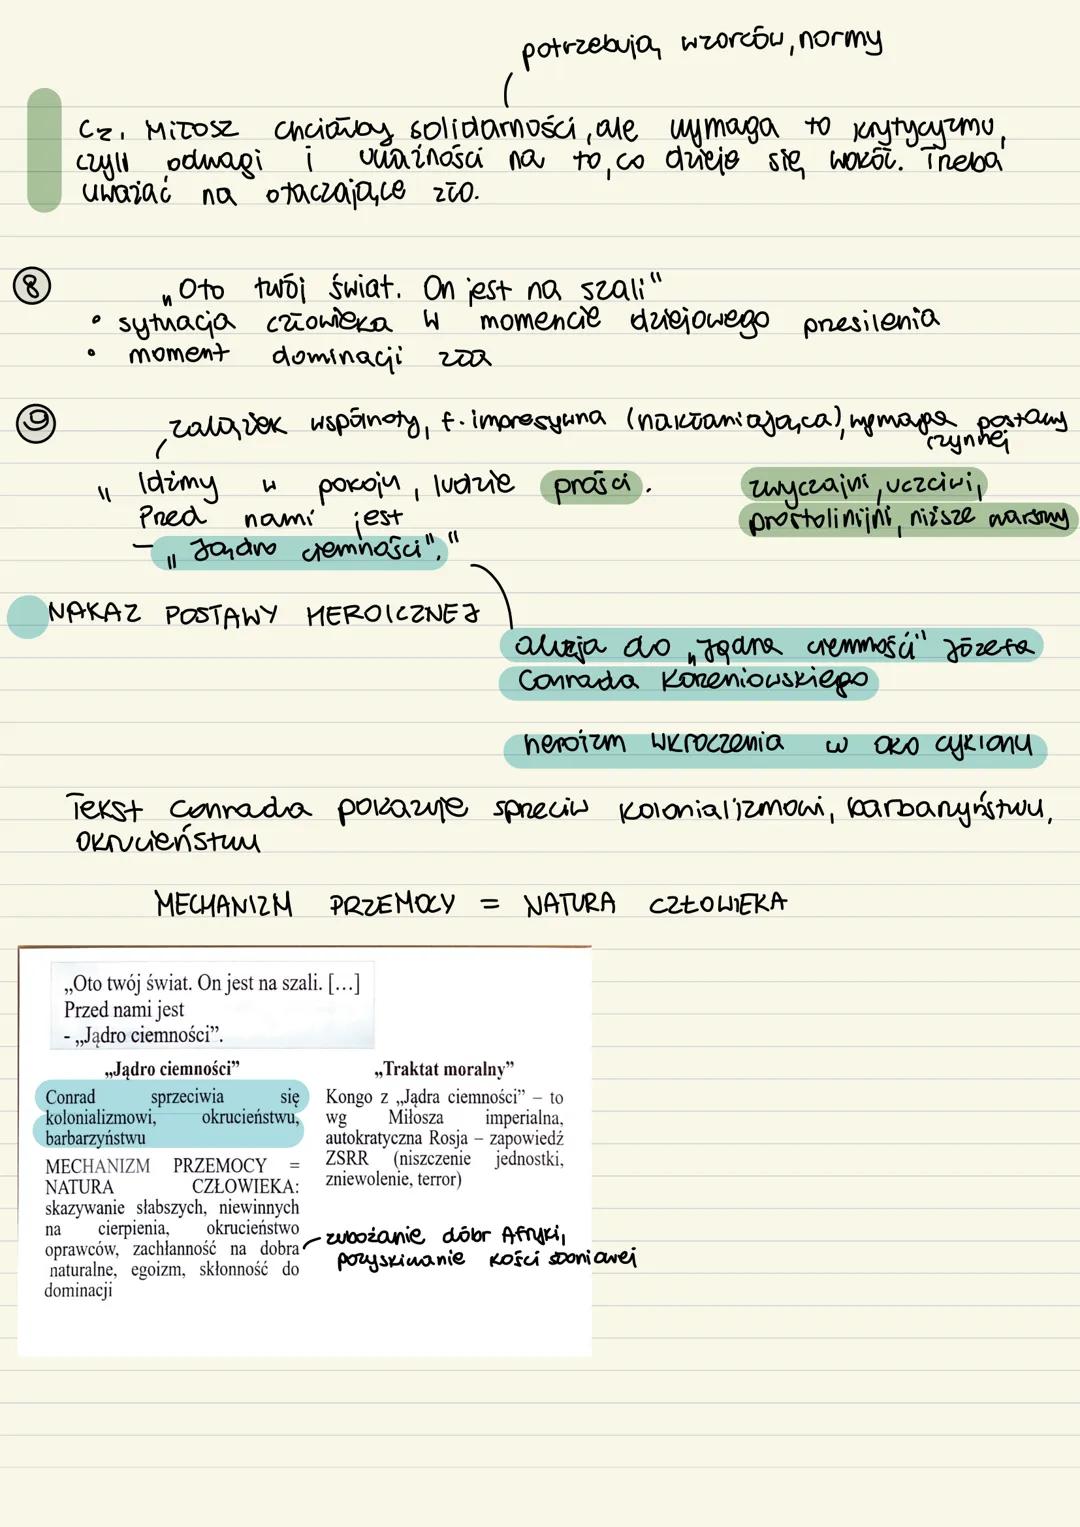 potrzebują wzorców, normy
Cz. Miłosz chciałby solidarności, ale wymaga to krytycyzmu,
czyli odwagi i uważności na to, co dzieje się wokół. Trzeba
uważać na otaczające zło.
8
„Oto twój świat. On jest na szali"
• sytuacja człowieka w momencie dziejowego przesilenia
• moment dominacji zła
9
zalążek wspólnoty, f. impresywna (nakłaniająca), wymaga postawy
czynnej
" Idźmy w pokoju, ludzie prości.
zwyczajni, uczciwi,
Przed nami jest
prostolinijni, niższe warstwy
- „Jądro ciemności"."
NAKAZ POSTAWY HEROICZNEJ
aluzja do „Jądra ciemności" Józefa
Conrada Korzeniowskiego
heroizm wkroczenia w oko cyklonu
Tekst Conrada pokazuje sprzeciw kolonializmowi, barbarzyństwu,
okrucieństwu
MECHANIZM PRZEMOCY = NATURA CZŁOWIEKA
„Oto twój świat. On jest na szali. […]
Przed nami jest
- „Jądro ciemności”.
„Jądro ciemności”
Conrad sprzeciwia się
kolonializmowi, okrucieństwu,
barbarzyństwu
MECHANIZM PRZEMOCY =
NATURA CZŁOWIEKA:
skazywanie słabszych, niewinnych
na cierpienia, okrucieństwo
oprawców, zachłanność na dobra
naturalne, egoizm, skłonność do
dominacji
„Traktat moralny”
Kongo z „Jądra ciemności” – to
wg Miłosza imperialna,
autokratyczna Rosja – zapowiedź
ZSRR (niszczenie jednostki,
zniewolenie, terror)
zubożanie dóbr Afryki,
pozyskiwanie kości słoniowej